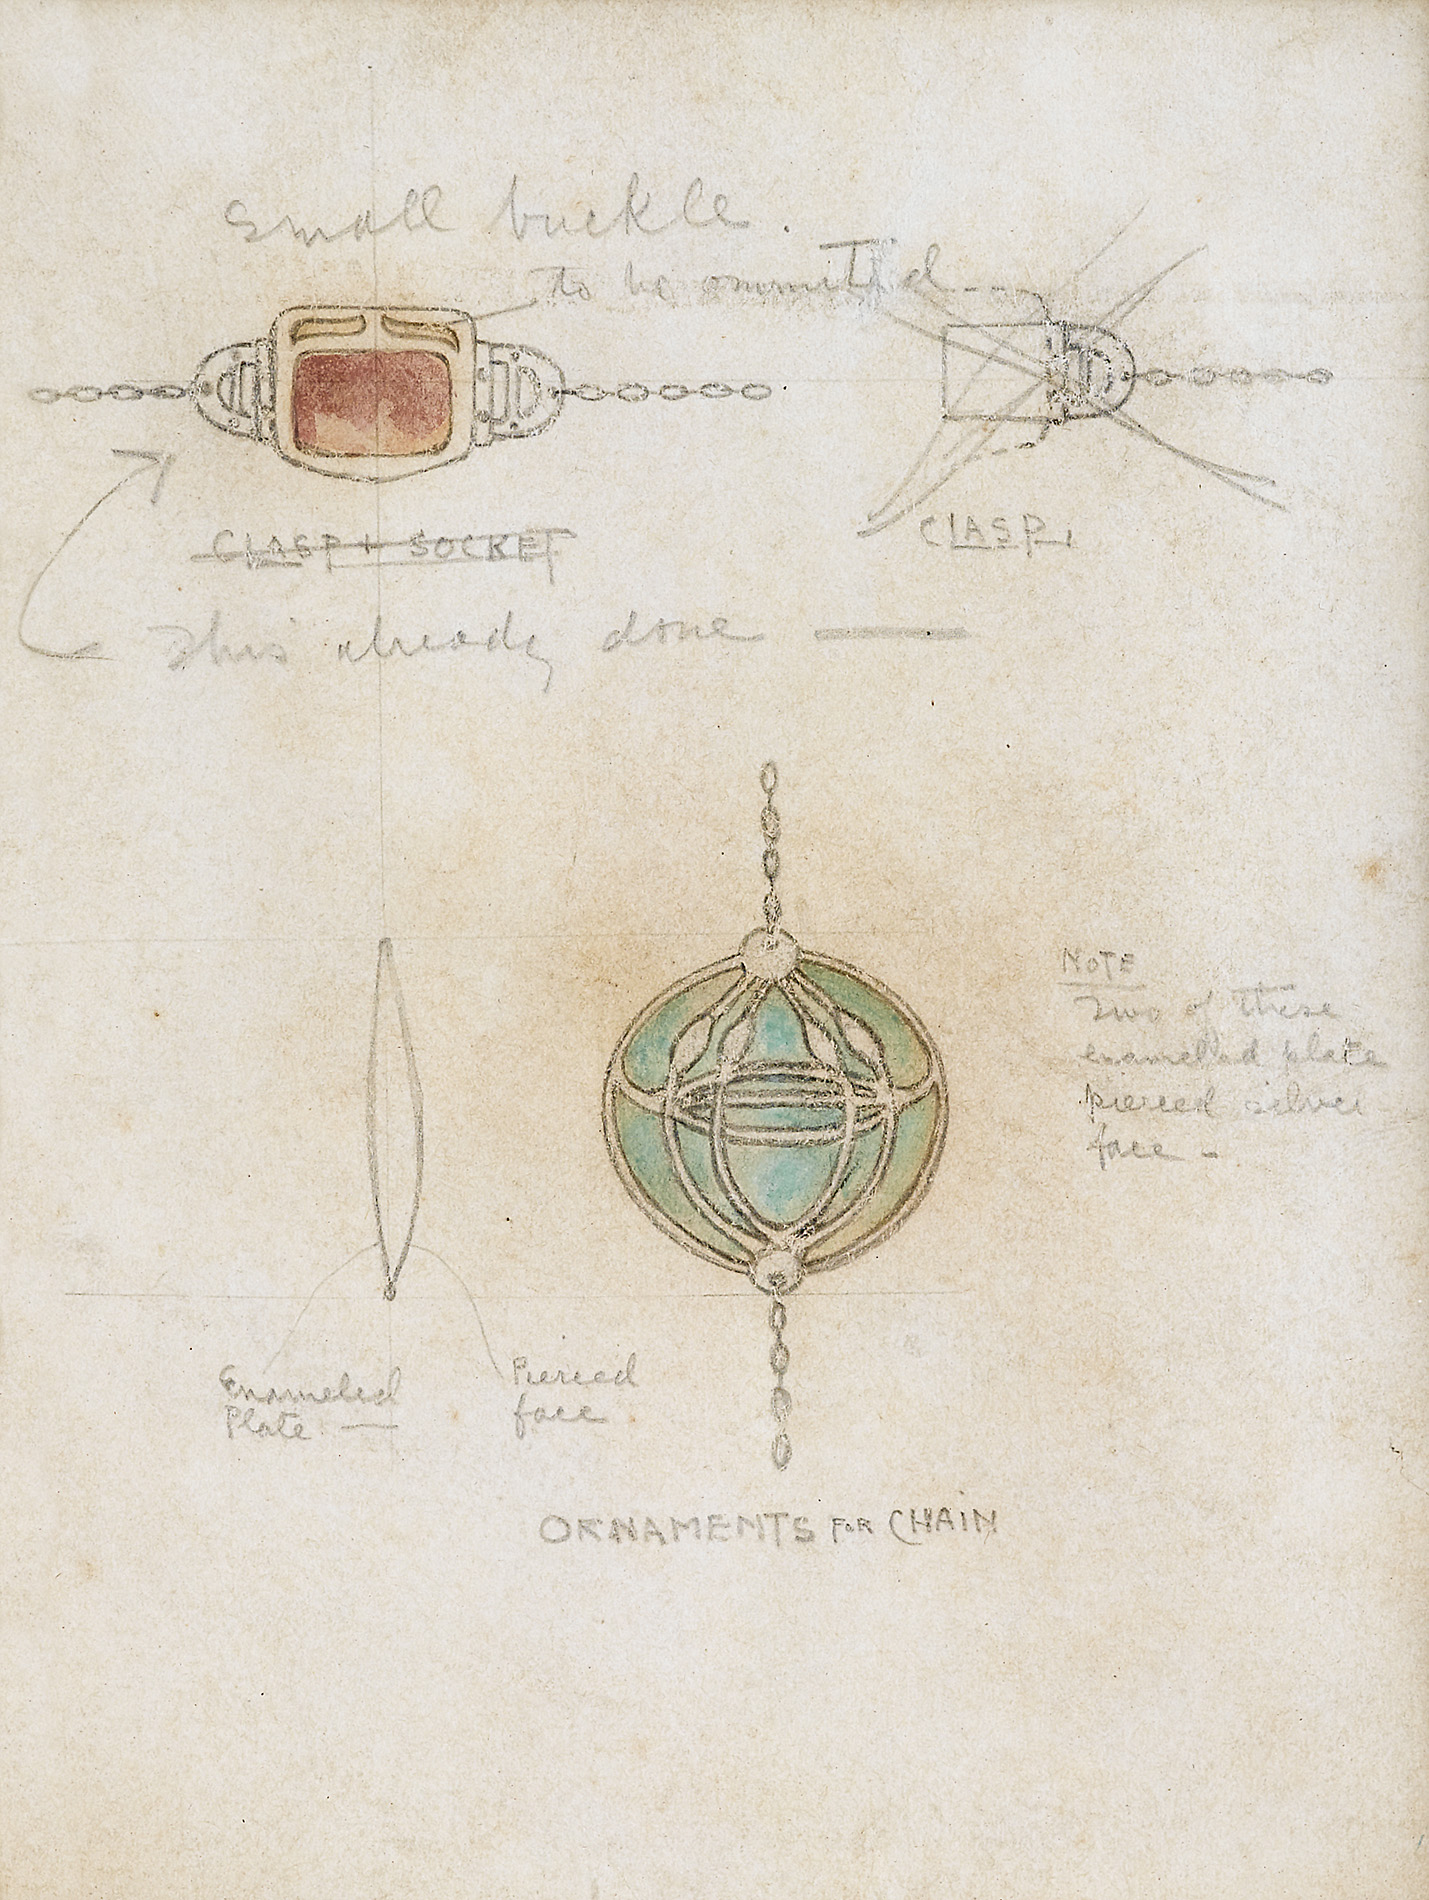 Small buckle.
to be ommitted
CLASP + SOCKET
CLASP,
This already done —
NOTE
Two of these
enameled plate
pierced silver
face -
Enameled
Plate —
Pierced
face
ORNAMENTS FOR CHAIN